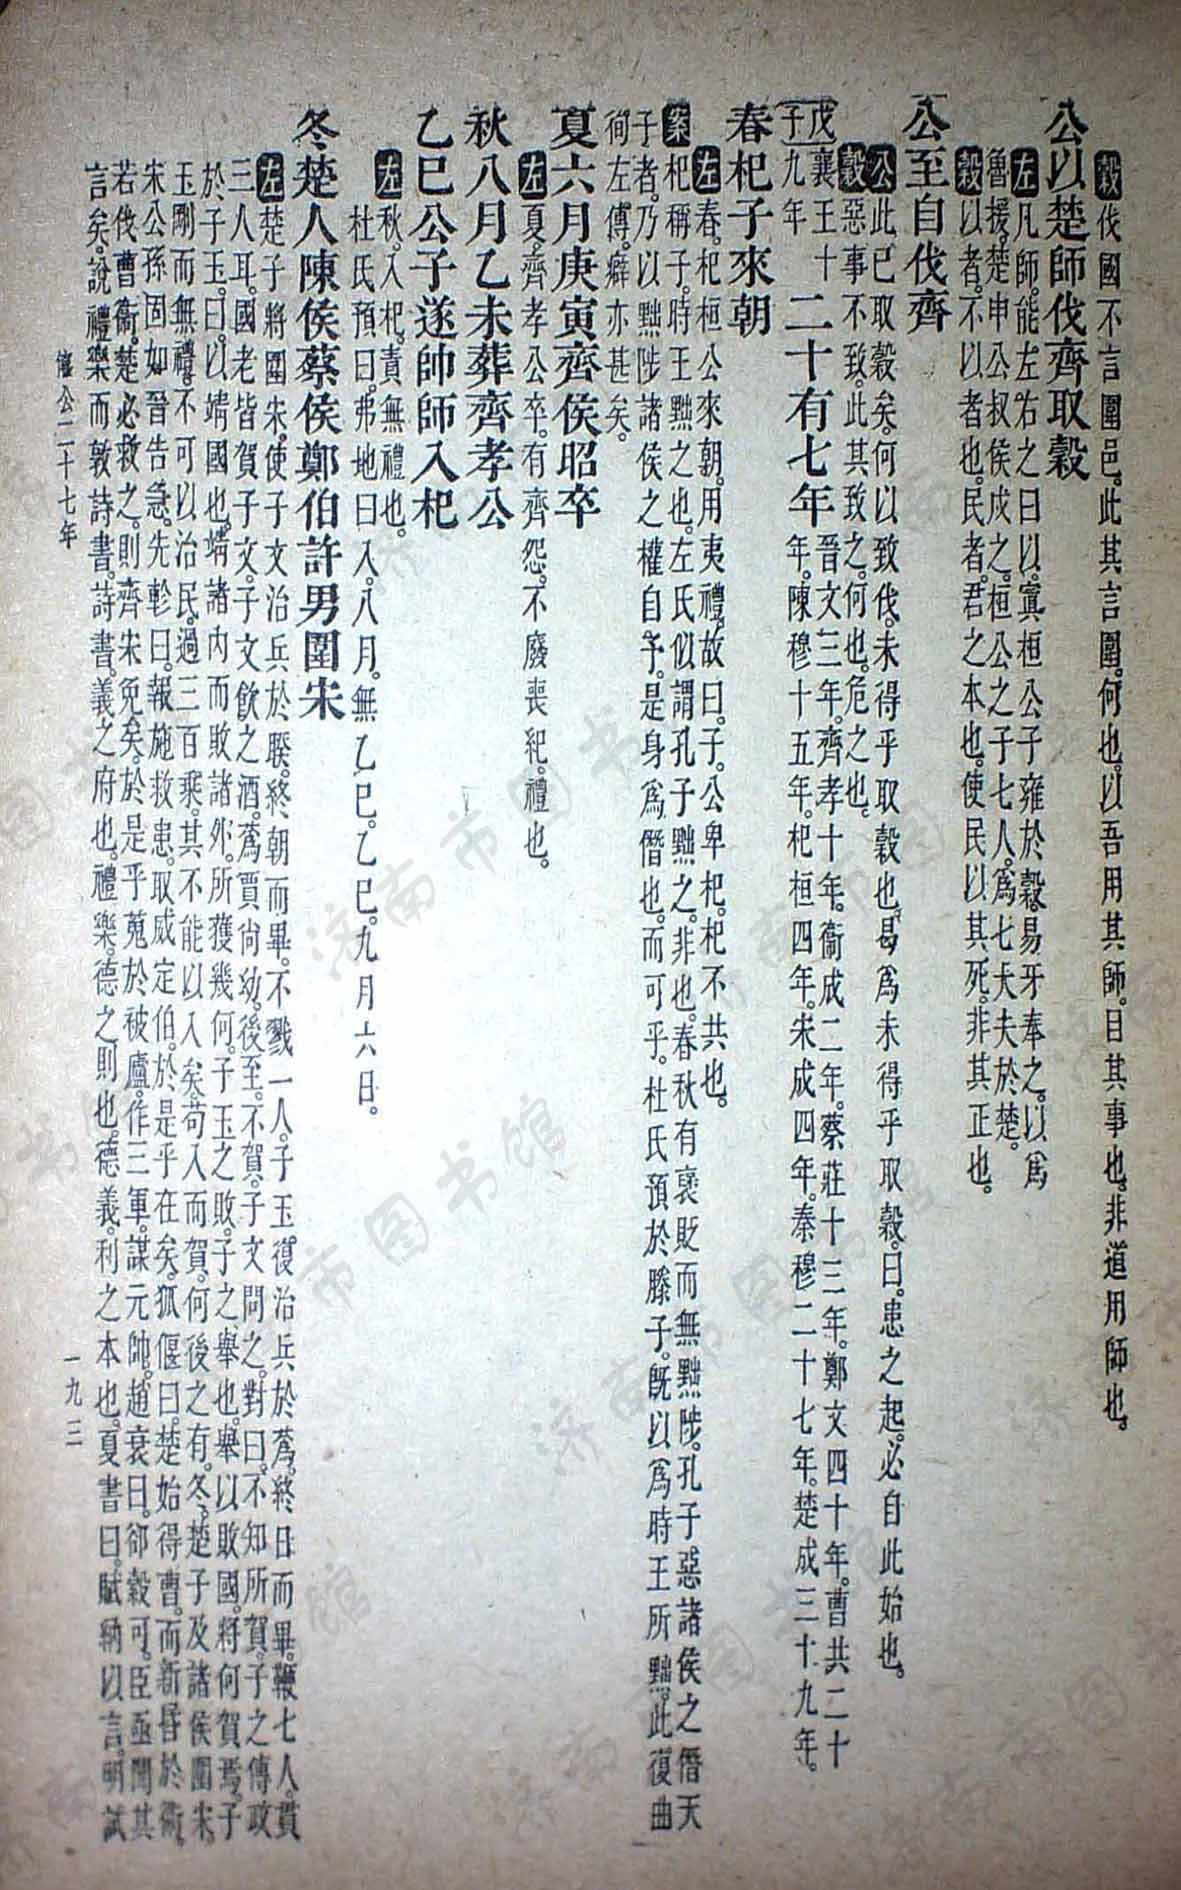 穀伐國不言圍邑。此其言圍。何也。以吾用其師。目其事也。非道用師也。
公以楚師伐齊取穀
左凡師。能左右之曰以。寘桓公子雍於穀。易牙奉之。以爲
魯援。楚申公叔侯戍之。桓公之子七人。爲七大夫於楚。
穀以者。不以者也。民者。君之本也。使民以其死。非其正也。
公至自伐齊
公此已取穀矣。何以致伐。未得乎取穀也。曷爲未得乎取穀。曰。患之起。必自此始也。
穀惡事不致。此其致之。何也。危之也。
戊子襄王十九年 二十有七年 晉文三年。齊孝十年。衞成二年。蔡莊十三年。鄭文四十年。曹共二十年。陳穆十五年。杞桓四年。宋成四年。秦穆二十七年。楚成三十九年。
春杞子來朝
左春。杞桓公來朝。用夷禮。故曰。子。公卑杞。杞不共也。
案杞稱子。時王黜之也。左氏似謂孔子黜之。非也。春秋有褒貶而無黜陟。孔子惡諸侯之僭天
子者。乃以黜陟諸侯之權自予。是身爲僭也。而可乎。杜氏預於滕子。旣以爲時王所黜。此復曲
徇左傳。癖亦甚矣。
夏六月庚寅齊侯昭卒
左夏。齊孝公卒。有齊怨。不廢喪紀。禮也。
秋八月乙未葬齊孝公
乙巳公子遂帥師入杞
左秋。入杞。責無禮也。
杜氏預曰。弗地曰入。八月。無乙巳。乙巳。九月六日。
冬楚人陳侯蔡侯鄭伯許男圍宋
左楚子將圍宋。使子文治兵於睽。終朝而畢。不戮一人。子玉復治兵於蔿。終日而畢。鞭七人。貫
三人耳。國老皆賀子文。子文飲之酒。蔿賈尚幼。後至。不賀。子文問之。對曰。不知所賀。子之傳政
於子玉。曰。以靖國也。靖諸內而敗諸外。所獲幾何。子玉之敗。子之舉也。舉以敗國。將何賀焉。子
玉剛而無禮。不可以治民。過三百乘。其不能以入矣。苟入而賀。何後之有。冬。楚子及諸侯圍宋。
宋公孫固如晉告急。先軫曰。報施救患。取威定伯。於是乎在矣。狐偃曰。楚始得曹。而新昏於衞。
若伐曹衞。楚必救之。則齊宋免矣。於是乎蒐於被廬。作三軍。謀元帥。趙衰曰。郤縠可。臣亟聞其
言矣。說禮樂而敦詩書。詩書。義之府也。禮樂。德之則也。德義。利之本也。夏書曰。賦納以言。明試
僖公二十七年
一九三